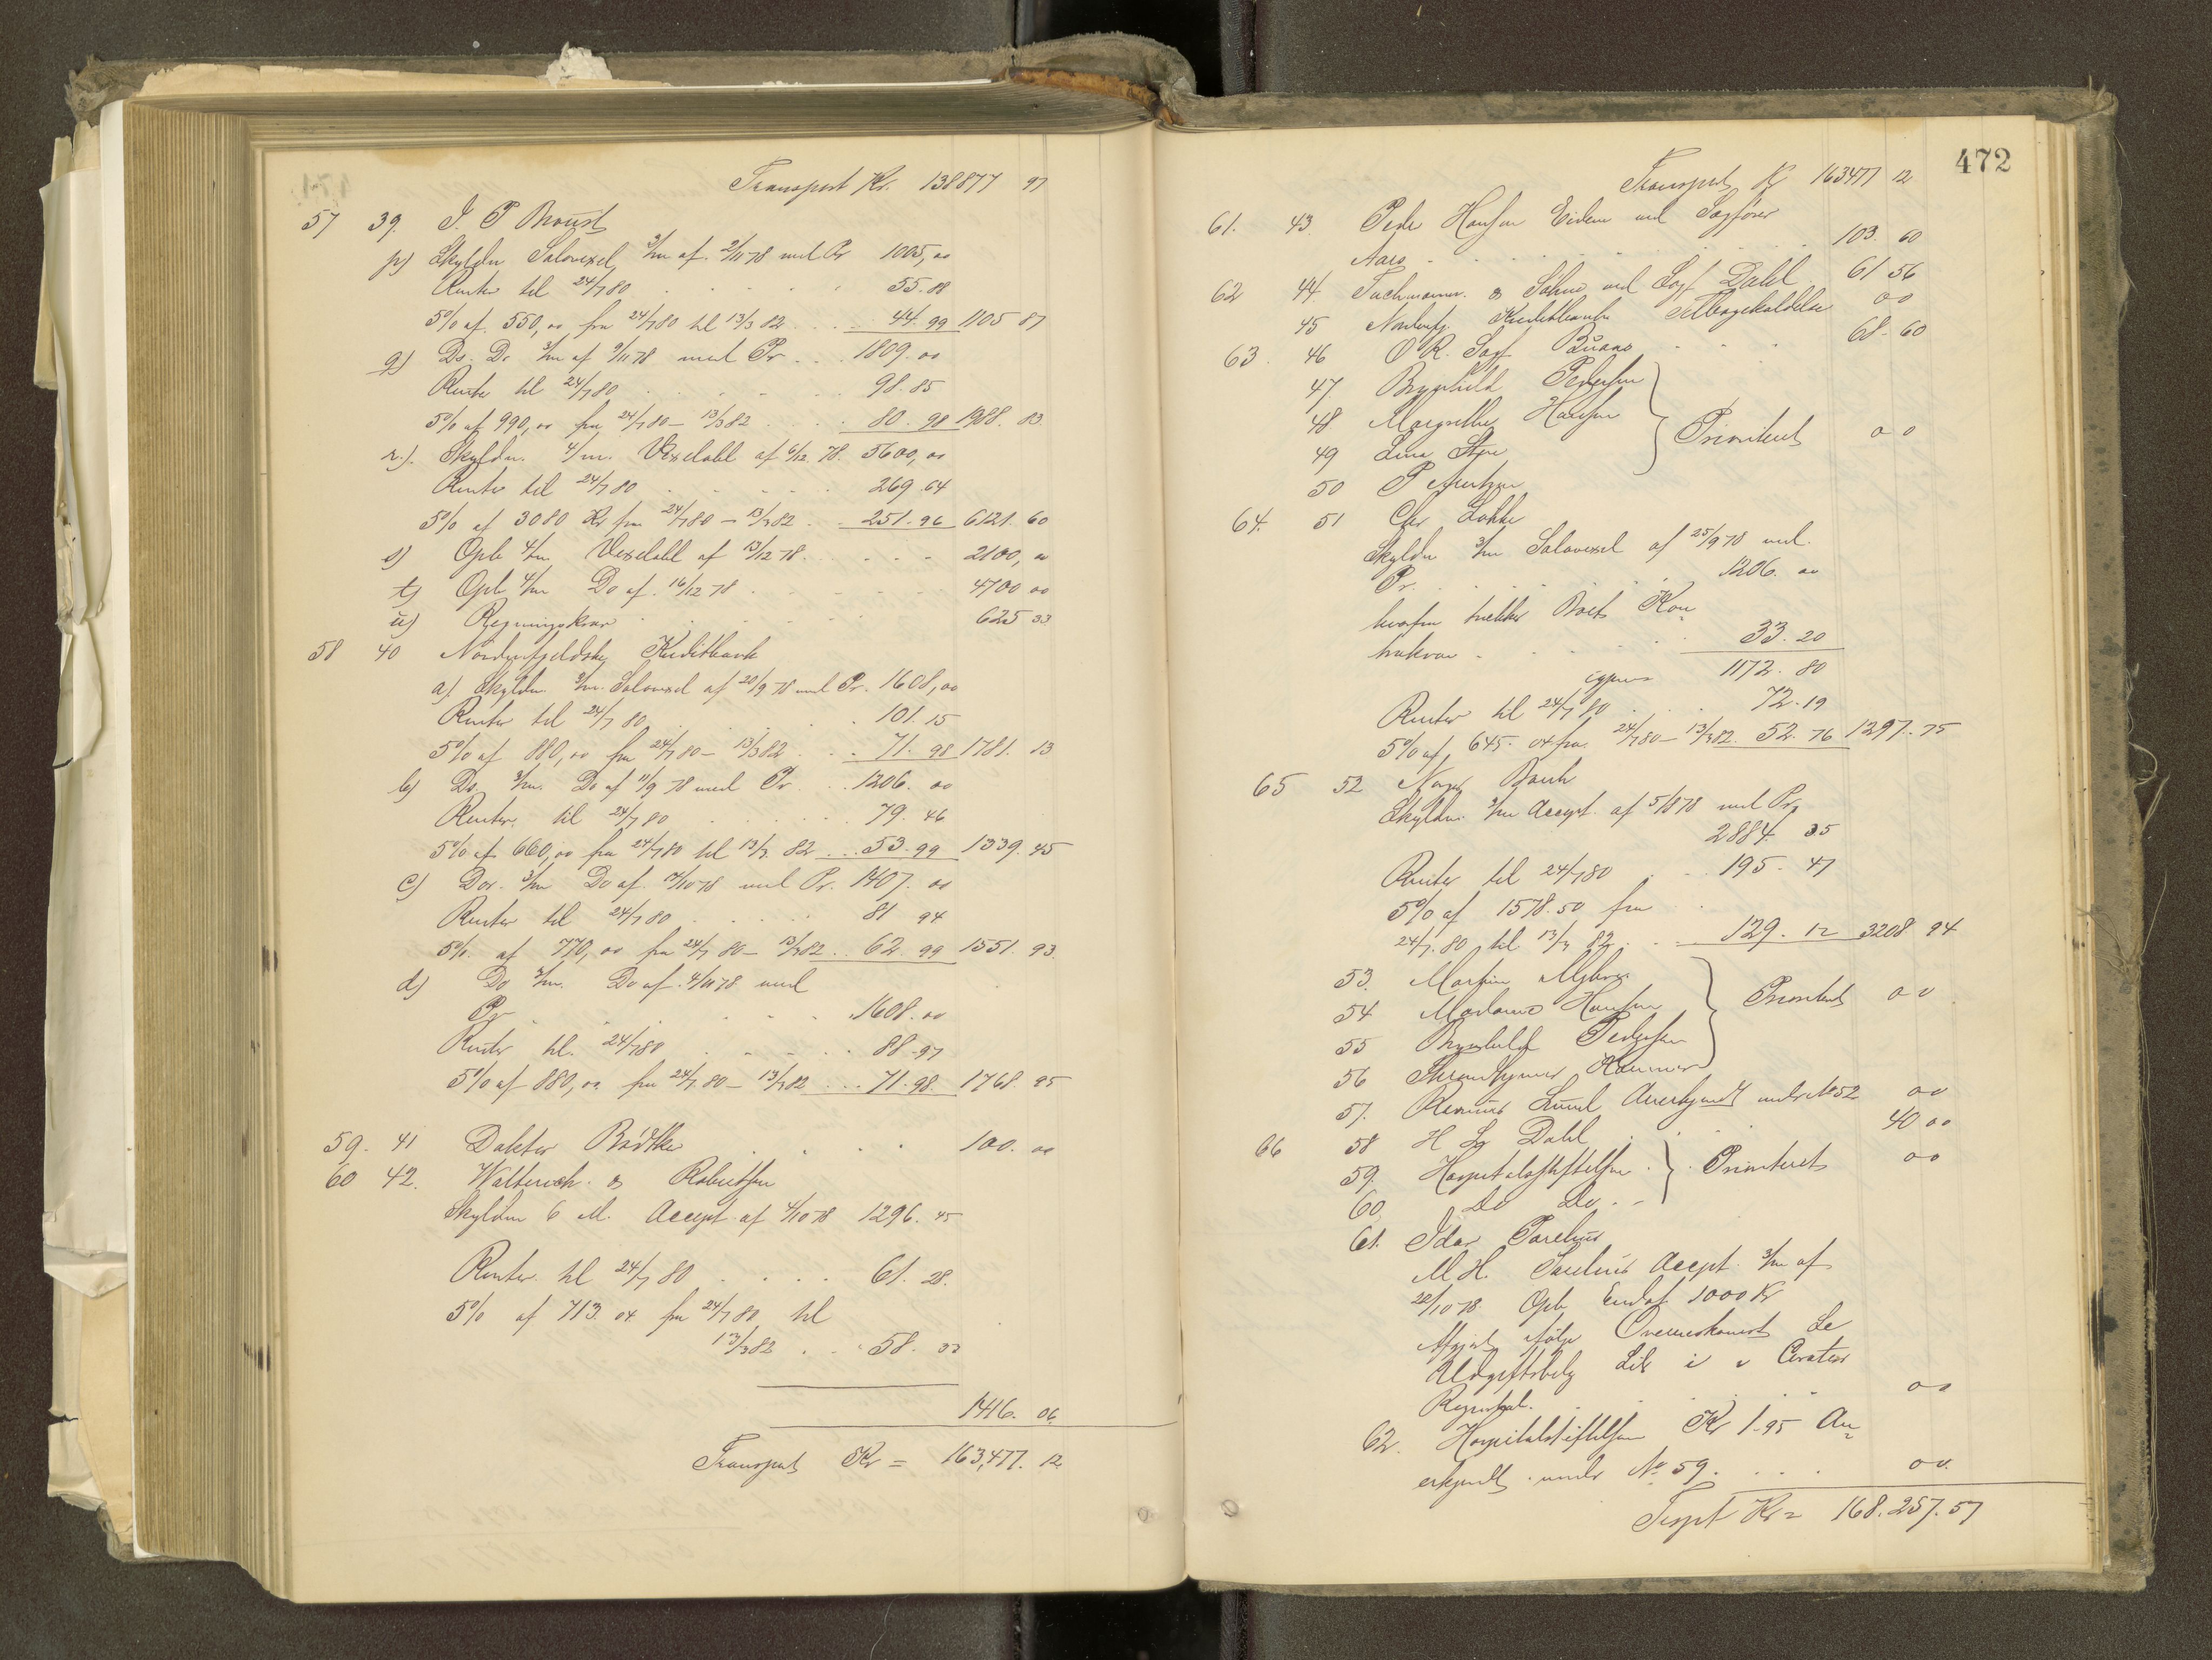 Transport Kr. 138877 97
57 39. J. P. Broust
p) Skyldn Solavexel 3/m af 2/11 78 med Pr 1005,00
Renter til 24/7 80 55.88
5% af 550,00 fra 24/7 80 til 13/3 82 44.99 1105 87
q) Do. Do 3/m af 9/11 78 med Pr. 1809.00
Renter til 24/7 80 98.85
5% af 990,00 fra 24/7 80 – 13/3 82 80.98 1988.83
r.) Skyldn. 4/m. Vexelobl af 6/12 78. 5600,00
Renter til 24/7 80 269.64
5% af 3080 Kr fra 24/7 80 – 13/3 82 251.96 6121.60
s) Opr 4/m Vexelobl af 13/12 78. 2100,00
t) Opr 4/m Do af. 16/12 78 4700 00
u) Regningskrav 625 33
58 40 Nordenfjeldske Kreditbank
a) Skyldn. 3/m. Solavexel af 20/9 78 med Pr. 1608,00
Renter til 24/7 80 101.15
5% af 880,00 fra 24/7 80 – 13/3 82 71.98 1781.13
b) Do. 3/m. Do af 11/9 78 med Pr. 1206.00
Renter. til 24/7 80 79.46
5% af 660,00 fra 24/7 80 til 13/3 82 53.99 1339.45
c) Do. 3/m Do af. 17/10 78 med Pr. 1407.00
Renter til 24/7 80 81 94
5% af 770,00 fra 24/7 80 – 13/3 82 62.99 1551.93.
d) Do 3/m. Do af 4/11 78 med
Pr. 1608.00
Renter til. 24/7 80 88.97
5% af 880,00 fra 24/7 80 – 13/3 82 71.98. 1768.95
59. 41 Doktor Bødtker 100.00
60 42. Walterick & Robertson
Skyldn 6 M. Accept af 4/10 78 1296.45
Renter til 24/7 80 61.28.
5% af 713.04 fra 24/7 80 til
13/3 82 58.33
1416.06
Transport Kr = 163,477.12.
472
Transport Kr 163477 12
61. 43. Peder Hansen Eidem ved Sagfører
Aars 103.60
62 44. Tuchmann & Søhne ved Sagf Dahl 61 56
45 Nordenfj. Kreditbank Tilbagekaldelse 00
63. 46 O R. Sagf Buaas 68.60
47. Brynhild Pedersen
48 Margrethe Hansen Prioritert 00
49 Lina Steen
50 P
64. 51 Chr Lohke
Skyldn 3/m Solavexel af 25/9 78 med
Pr. 1206.00
hvorfra trækkes Boets Kon
trakrav 33.20
igjen 1172.80
Renter til 24/7 80 72.19
5% af 645.04 fra 24/7 80 – 13/3 82. 52.76 1297.75
65 52 Norges Bank
Skyldn. 3/m Accept. af 5/8 78 med Pr.
2884.35
Renter til 24/7 80 195.47
5% af 1578.50 fra
24/7 80 til 13/3 82 129.12 3208 94
53. Martin
54 Hansen Prioritert 00
55 Brynhild Pedersen
56 Throndhjems
57. Rasmus Lund Anerkjendt under No 52 00
66 58 H Lg Dahl 40 00
59. Hospitalsstiftelsen Prioriteret 00
60. Do Do
61. Idar Parelius
M H. Parelius Accept. 3/m af
22/10 78 Opr 1000 Kr
ifølge Overenskomst Se
Udgiftsbilg Lit i v Curators
Regnskab. 00
62. Hospitalsstiftelsen Kr 1.95 An
erkjendt under No 59. 00.
Trspt Kr = 168.257.57